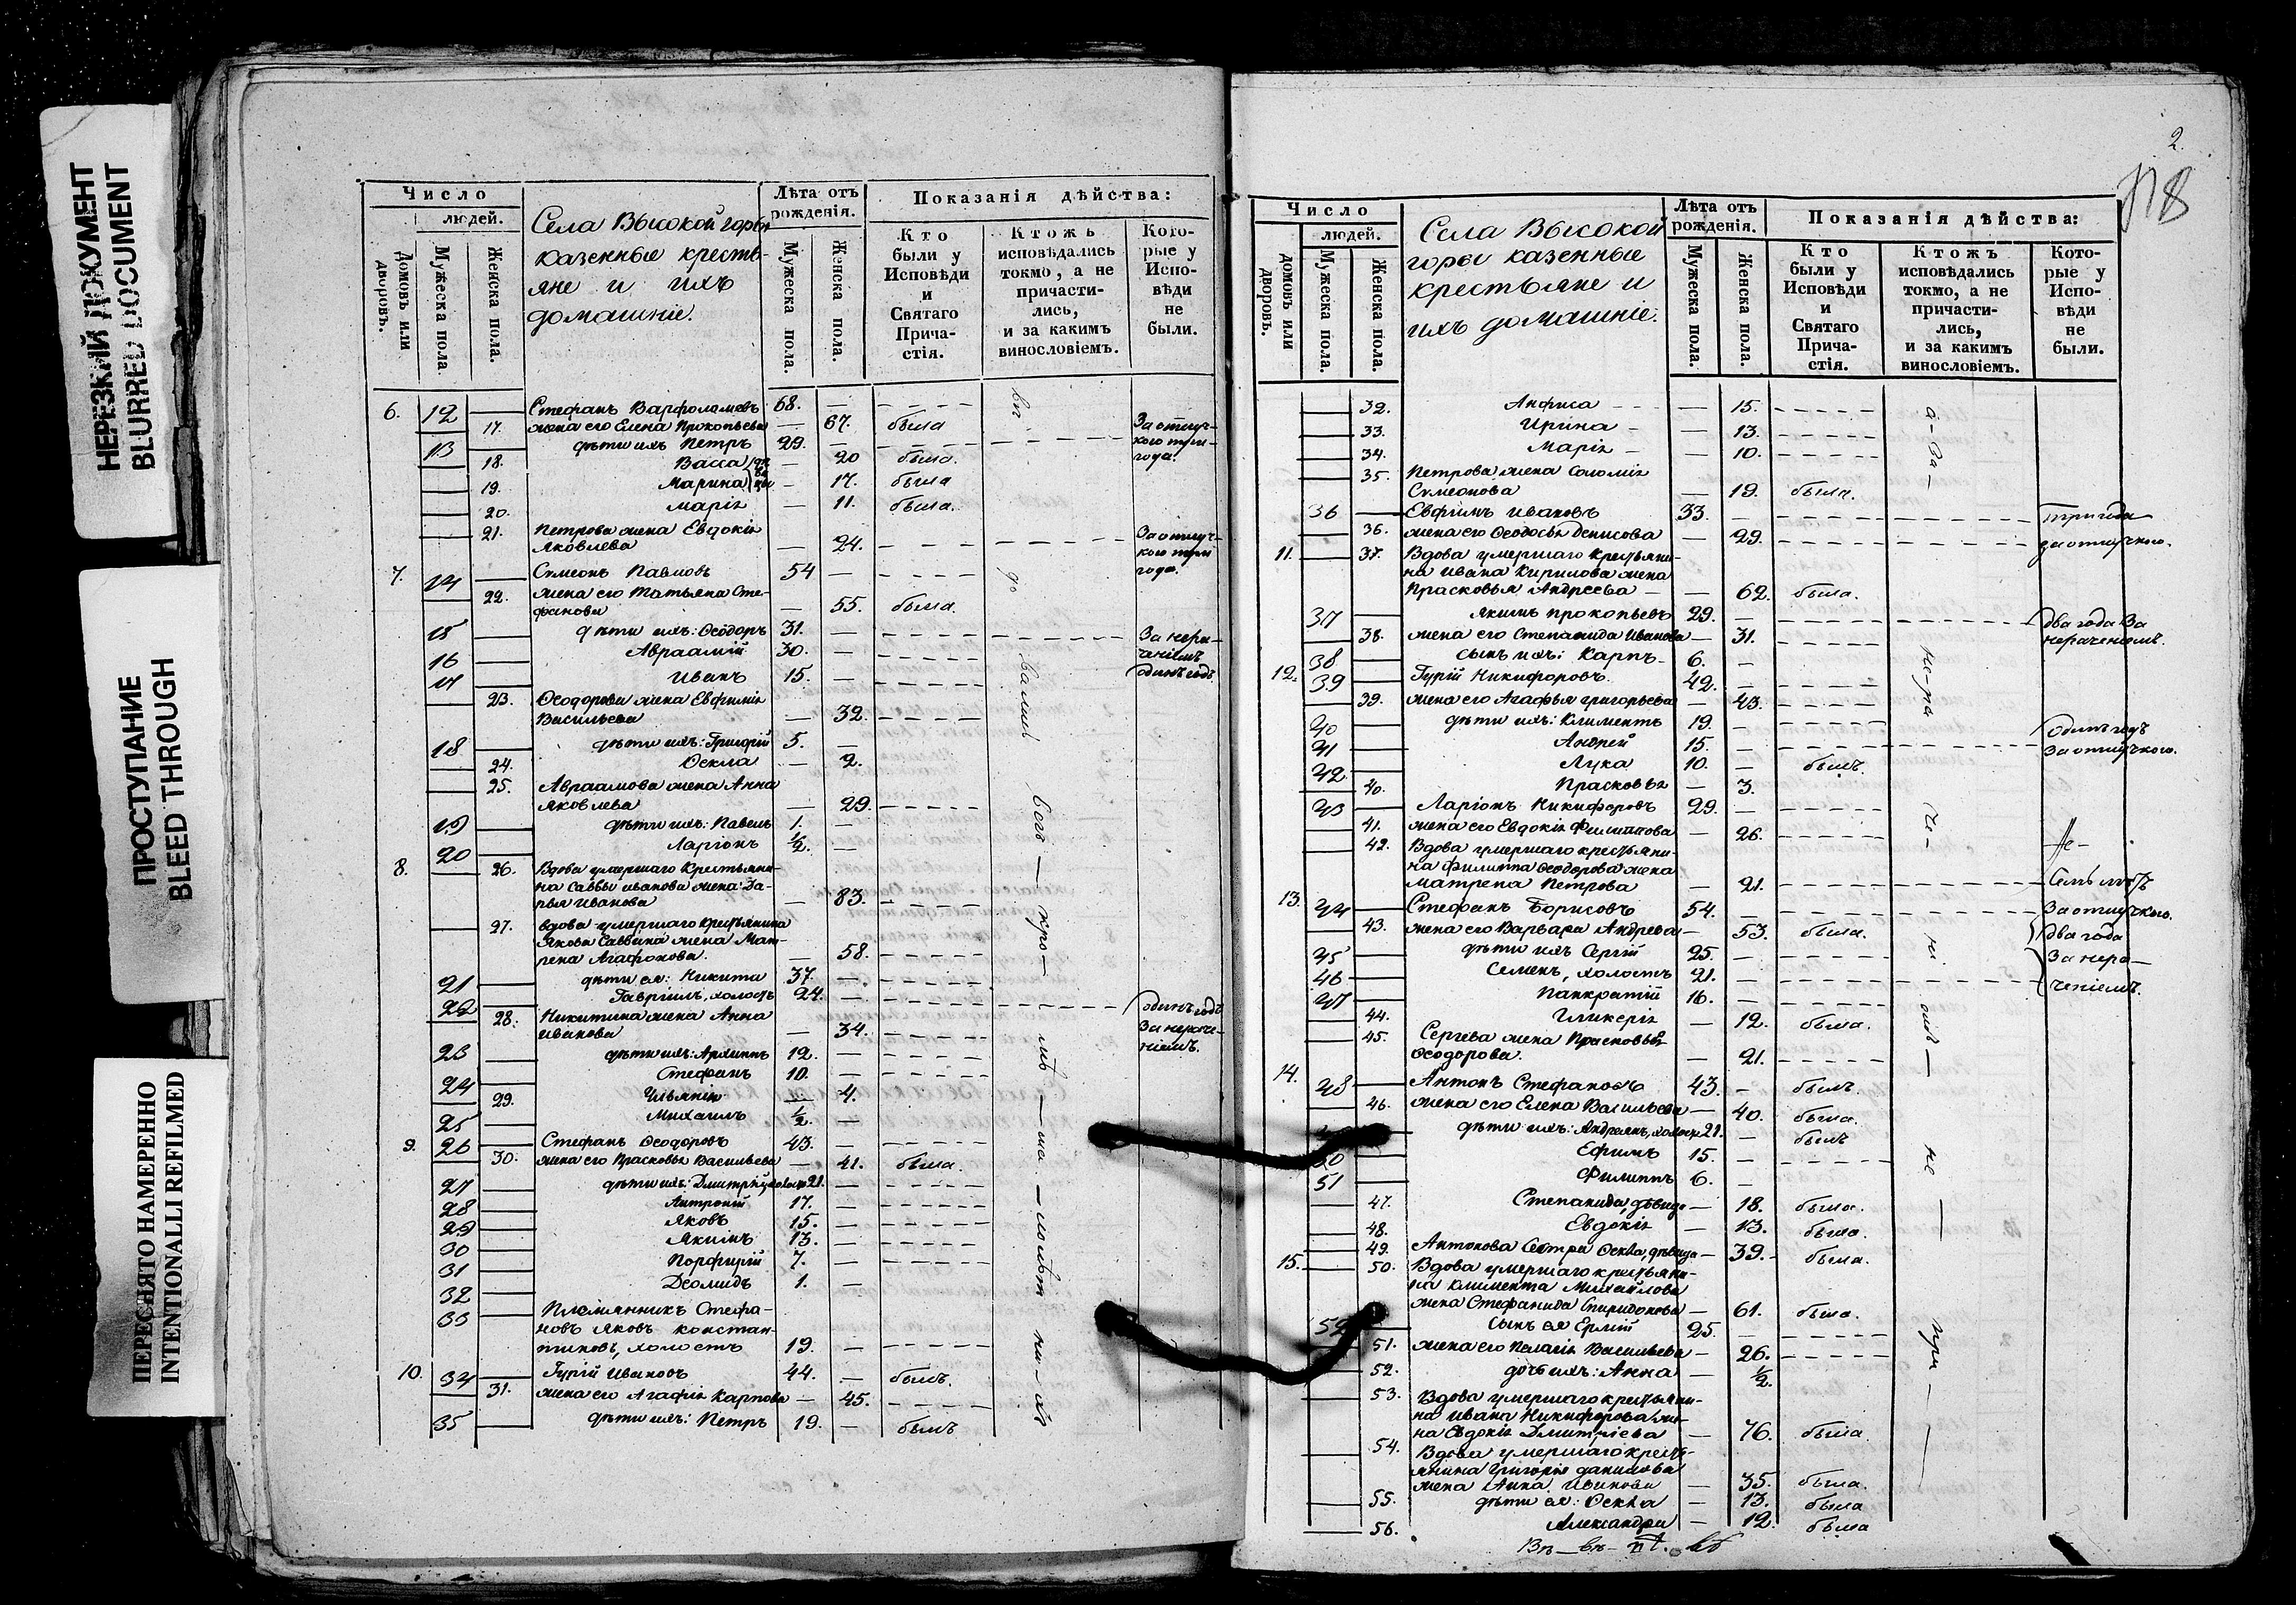 НЕРЕЗКИЙ ДОКУМЕНТ
BLURRED DOCUMENT
ПРОСТУПАНИЕ
BLEED THROUGH
ПЕРЕСНЯТО НАМЕРЕННО
INTENTIONALLI REFILMED
Число
людей.
Домовъ или дворовъ.
Мужеска пола.
Женска пола.
Села Высокой горы
казенные кресть-
яне и ихъ
домашніе.
Лѣта отъ рожденія.
Мужеска пола.
Женска пола.
Показанія дѣйства:
Кто были у Исповѣди и Святаго Прича-стія.
Ктожъ исповѣдались токмо, а не причасти-лись, и за какимъ винословіемъ.
Кото-рые у Испо-вѣди не были.
6. 12 Стефанъ Варфоломевъ 68.
17. жена его Елена Прокопьева 67. была За отлуч-
13 дѣти ихъ Петръ 29. кого три
18. Васса 20 была. года.
19. Марина 17. была
20. Марія 11. была.
21. Петрова жена Евдокія
Яковлева 24. За отлуч-
кого три
года.
7. 14 Сѵмеонъ Павловъ 54
22. жена его Татьяна Сте-
фанова 55. была.
15 дѣти ихъ: Ѳеодоръ 31. За нера-
16 Авраамій 30. ченіемъ
17 Иванъ 15. одинъ годъ
23. Ѳеодорова жена Евфимія
Васильева 32.
18 дѣти ихъ: Григорій 5.
24. Ѳекла 2.
25. Авраамова жена Анна
Яковлева 29.
19 дѣти ихъ: Павелъ 1.
20 Ларіонъ ½.
8. 26. Вдова умершаго Крестьяни-
на Саввы Иванова жена: Да-
рья Иванова 83.
27. вдова умершаго Крестьянина
Якова Саввина жена Мат-
рена Агафонова. 58.
21 дѣти ея: Никита 37.
22 Гавріилъ, холостъ 24. одинъ годъ
28. Никитина жена Анна
Иванова 34. За нераче-
23 дѣти ихъ: Архиппъ 12. ніемъ.
24 Стефанъ 10.
29. 4.
25 Михаилъ ½.
9. 26 Стефанъ Ѳеодоровъ 43.
30. жена его Прасковья Васильева 41. была.
27 дѣти ихъ: Дмитрій, холостъ 21.
28 17.
29 Яковъ 15.
30 Якимъ 13.
31 Порфирій 7.
32 Деомидъ 1.
33 Племянникъ Стефа-
новъ Яковъ констан-
тиновъ, холостъ 19.
10. 34 Гурій Ивановъ 44. былъ.
31. жена его Агафія Карпова 45.
35 дѣти ихъ: Петръ 19. былъ
2.
Число
людей.
домовъ или дворовъ.
Мужеска пола.
Женска пола.
Села Высокой
горы казенные
крестьяне и
ихъ домашніе.
Лѣта отъ рожденія.
Мужеска пола.
Женска пола.
Показанія дѣйства:
Кто были у Исповѣди и Святаго Прича-стія.
Ктожъ исповѣдались токмо, а не причасти-лись, и за какимъ винословіемъ.
Кото-рые у Испо-вѣди не были.
32. Анфиса 15.
33. Ирина 13.
34. Марія 10.
35. Петрова жена Соломія
Сѵмеонова 19. была.
36 Евфимъ Ивановъ 33. три года
36. жена его Ѳеодосья Денисова 29. за отлучкою.
11. 37. Вдова умершаго Крестьяни-
на Ивана Кирилова жена
Прасковья Андреева 62. была.
37 Якимъ Прокопьевъ 29. два года За
38. жена его Степанида Иванова 31. нераченіемъ.
38 сынъ ихъ: Карпъ 6.
12. 39 Гурій Никифоровъ. 42.
39. жена его Агафья Григорьева 43.
40 дѣти ихъ: Климентъ 19. одинъ годъ
41 Андрей 15. За отлучкою.
42 Лука 10. былъ.
40. Прасковья 3.
43 Ларіонъ Никифоровъ 29.
41. жена его Евдокія Филиппова 26.
42. Вдова умершаго крестьяни-
на Филиппа Ѳеодорова жена
Матрена Петрова 21. Семь лѣтъ
13. 44 Стефанъ Борисовъ 54. За отлучкою.
43. жена его Варвара Андреева 53. была. два года
45 дѣти ихъ Сергій 25. За нера-
46 Семенъ, холостъ 21. ченіемъ.
47 Панкратій 16.
44. Гликерія 12. была.
45. Сергева жена Прасковья
Ѳеодорова. 21.
14. 48 Антонъ Стефановъ 43. былъ.
46. жена его Елена Васильева 40. была.
дѣти ихъ: Андреянъ, холостъ 21. былъ
50 Ефимъ 15.
51 Филиппъ 6.
47. Степанида, дѣвица 18. была.
48. Евдокія 13. была.
49. Антонова Сестра Ѳекла, дѣвица 39. была.
15. 50. Вдова умершаго крестьяни-
на Климента Михайлова
жена Стефанида Спиридонова 61. была.
52 сынъ ея Ермій 25.
51. жена его Пелагія Васильева 26.
52. дочь ихъ: Анна ½.
53. Вдова умершаго крестьяни-
на Ивана Никифорова же-
на Евдокія Дмитріева 76. была
54. Вдова умершаго кресть-
янина Григорія Данилова
жена Анна Иванова 35. была.
55. дѣти ея: Ѳекла 13. была
56. Александра 12. была